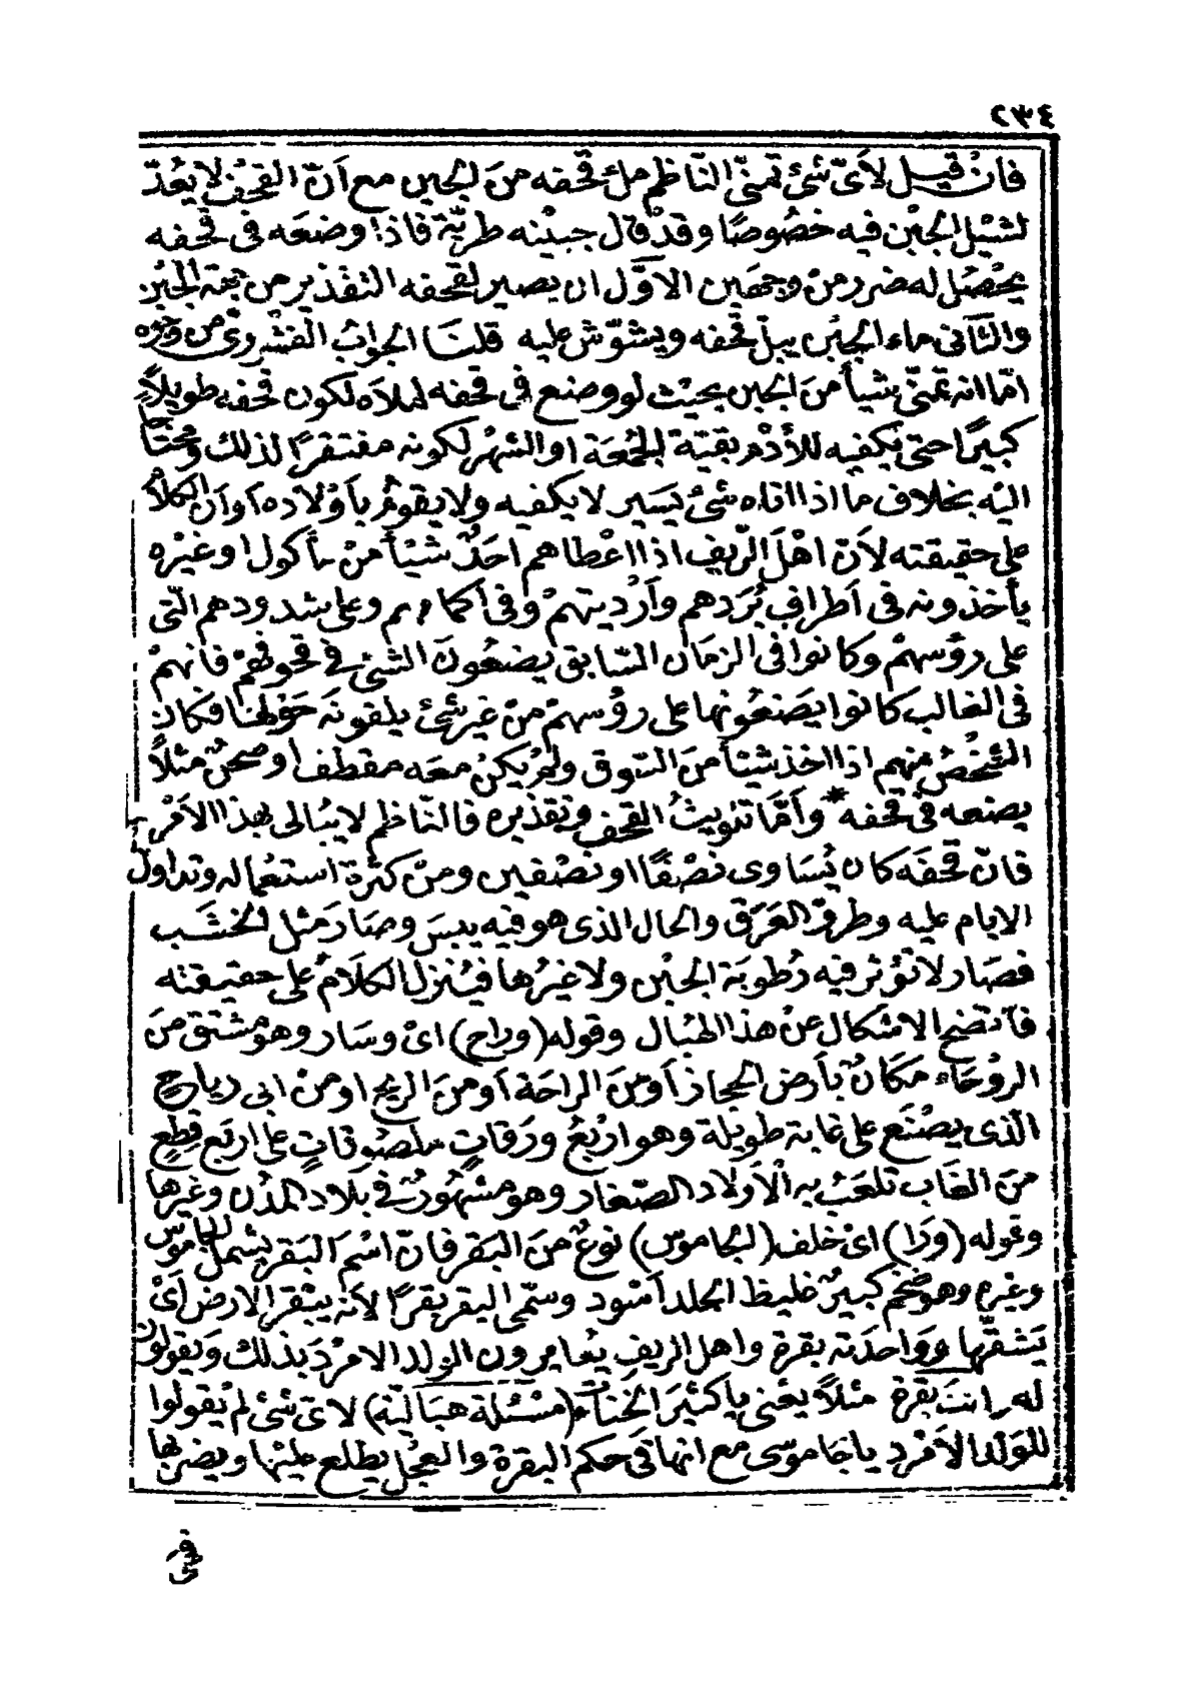 ٢٣٤
فان قيل لأىّ شئ تمنّى الناظم ملئ قحفه من الجبن مع أنّ القحف لا يعدّ
لشيل الجبن فيه خصُوصًا وقد قال جبينه طريّة فاذا وضعَه فى قحفه
يحصُل له ضرر من وجهين الاوّل ان يصير لقحفه التقذير من جهة الجبن
والثانى ماء الجبن يبلّ قحفه ويشوّش عليه قلنا الجوابُ الفشروى من وجوه
امّا انه تمنّى شيأ من الجبن بحيث لو وضع فى قحفه لملأه لكون قحفه طويلاً
كبيرًا حتى يكفيه للأدم بقيّة الجمعَة او الشهر لكونه مفتقرًا لذلك ومحتاجًا
اليه بخلاف ما اذا اتاه شئ يسير لا يكفيه ولا يقوم بأولاده أو أن الكلام
على حقيقته لأن اهل الريف اذا اعطاهم احدٌ شيئاً من مأكول او غيره
يأخذونه فى أطراف بُرَدهم وأرديتهم وفى أكمامهم وعلى شدودهم التى
على رؤسهم وكانوا فى الزمان السّابق يضعُون الشئ فى قحوفهم فانهم
فى الغالب كانوا يضعونها على رؤسهم من غير شئ يلفونه حولها فكان
الشخص منهم اذا اخذ شيئاً من السّوق ولم يكن معَه مقطف او صحن مثلاً
يضعه فى قحفه * وأمّا تلويثُ القحف وتقذيره فالنّاظم لا يبالى بهذا الأمر
فانّ قحفه كان يُساوى نصفًا او نصفين ومن كثرة استعماله وتداول
الايام عليه وطرق العَرَق والحال الذى هو فيه يبسَ وصَارَ مثل الخشَب
فصَار لا تؤثر فيه رُطوبَة الجبْن ولا غيرُها فيُنزل الكلامُ على حقيقته
فاتضح الاشكال عن هذا الهبال وقوله (وراح) اى وسَار وهو مشتق من
الروحَاء مكانٌ بأرض الحجاز أو من الراحَة أو من الريح او من ابى رياح
الّذى يصْنَع على غابة طويلة وهو اربعُ ورقاتٍ ملصُوقاتٍ على اربَع قطعٍ
منَ الغاب تلعبُ به الأولاد الصّغار وهو مشهُورٌ فى بلاد المدُن وغيرها
وقوله (وَرَا) اى خلف (الجاموس) نوعٌ من البَقر فانّ اسْم البَقر يشمل الجاموس
وغيره وهو ضخم كبيرٌ غليظ الجلد أسْود وسمّى البقر بقرًا لأنه يبقر الارض أىْ
يَشقّها وواحدَته بقرة واهل الريف يعُايرون الولد الامرَد بذلك ويقولون
له انت بقرة مثلاً يعنى يا كثير الخنا (مسْئلة هبَاليّة) لأىّ شئ لم يقولوا
للوَلد الأمرد يا جاموسى مع انها فى حكم البقرة والعجْل يطلع عليْها ويضربها
فى